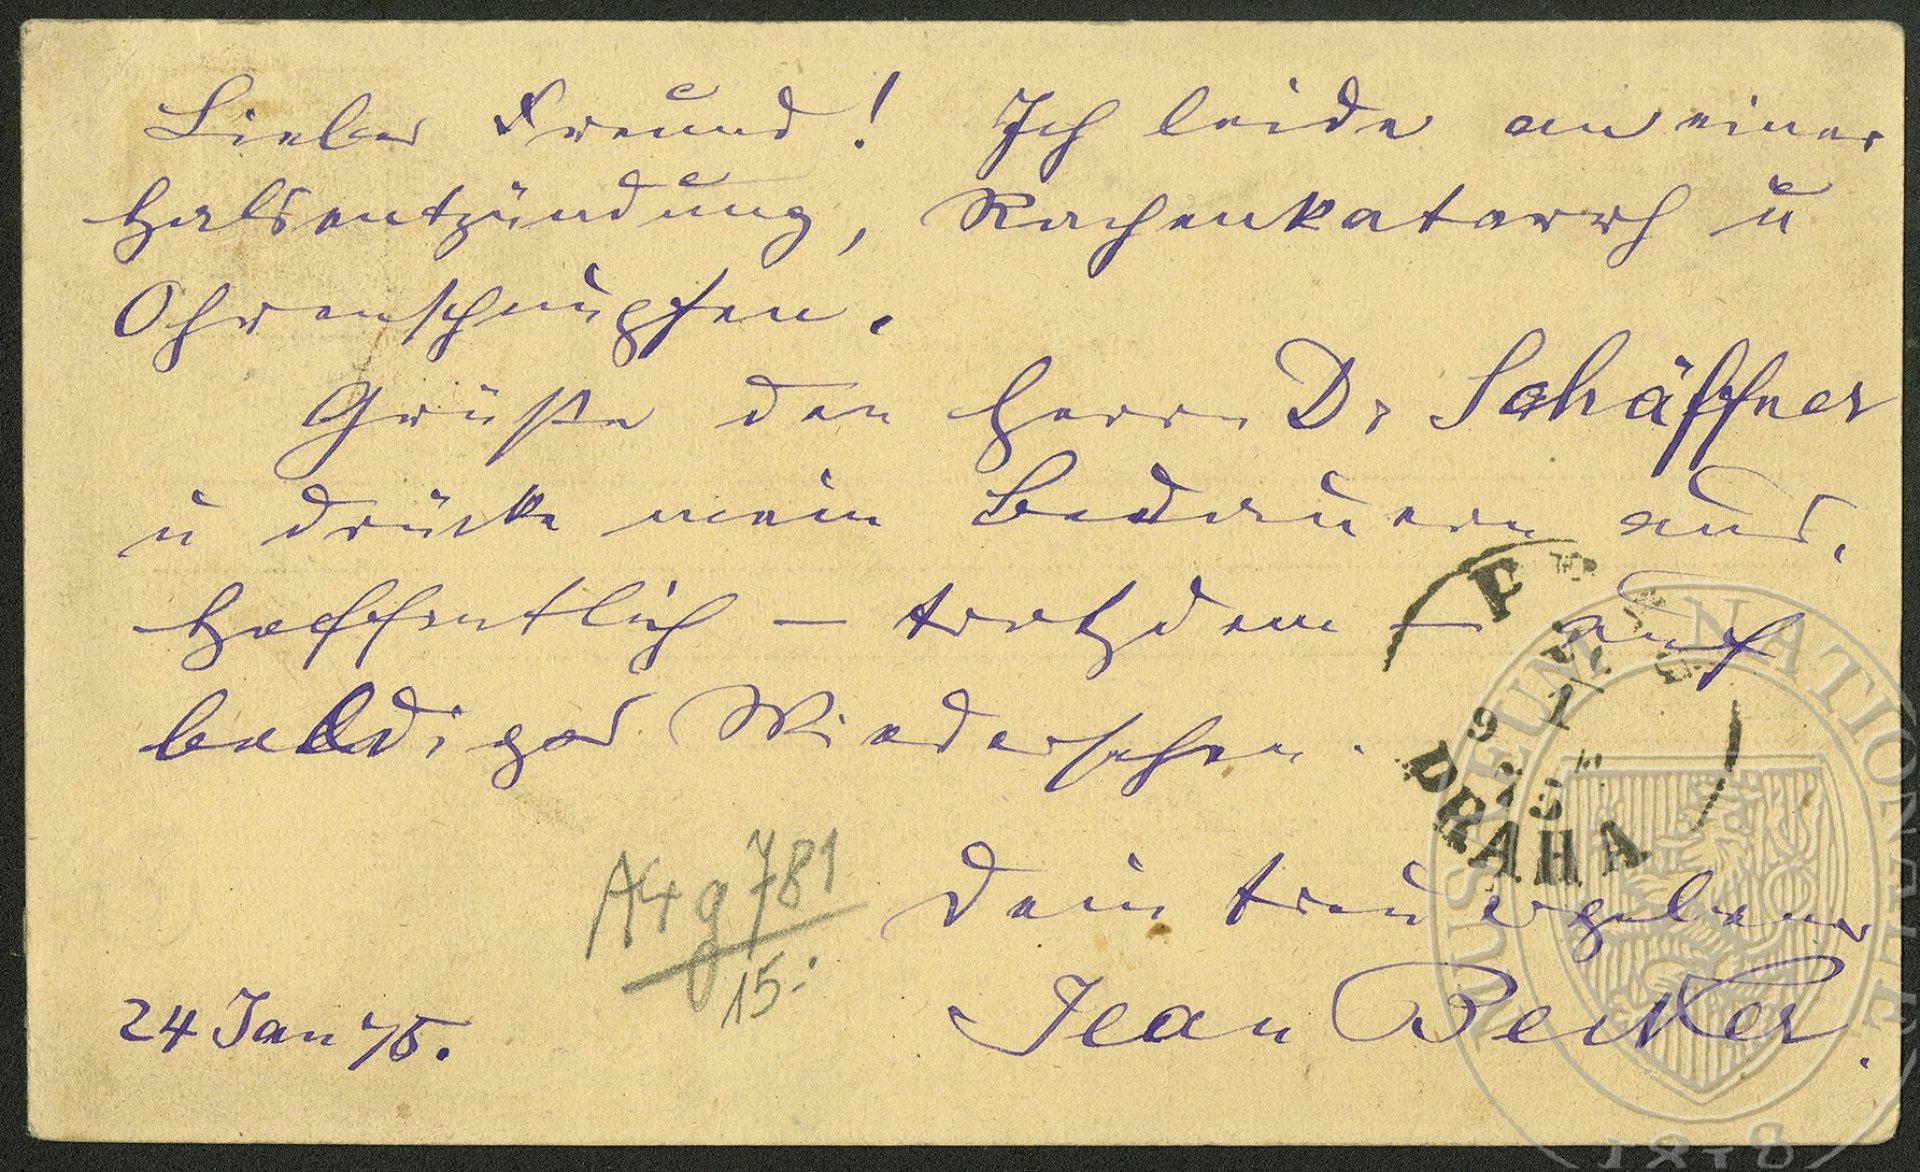 Lieber Freund! Ich leide an einer
Halsentzündung, Rachenkatarrh u
Ohrenschnupfen.
Grüße den Herrn Dr Schäffner
u drücke mein Bedauern aus.
Hoffentlich – trotzdem – auf
baldiges Wiedersehen.
Dein treu ergebener
Jean Becker.
24 Jan 75.
A4g 781
15:
PRAHA
MUSEUM NATIONALE
1818